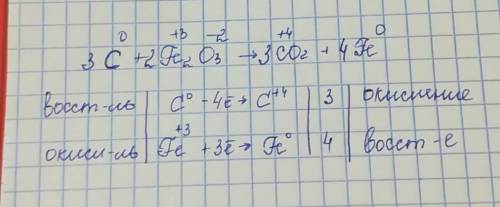 0 +3 -2 +4 0
3C + 2Fe2O3 → 3CO2 + 4Fe
восст-ль | C⁰ - 4ē → C⁺⁴ | 3 | окисление
окисл-ль | Fe⁺³ + 3ē → Fe⁰ | 4 | восст-е